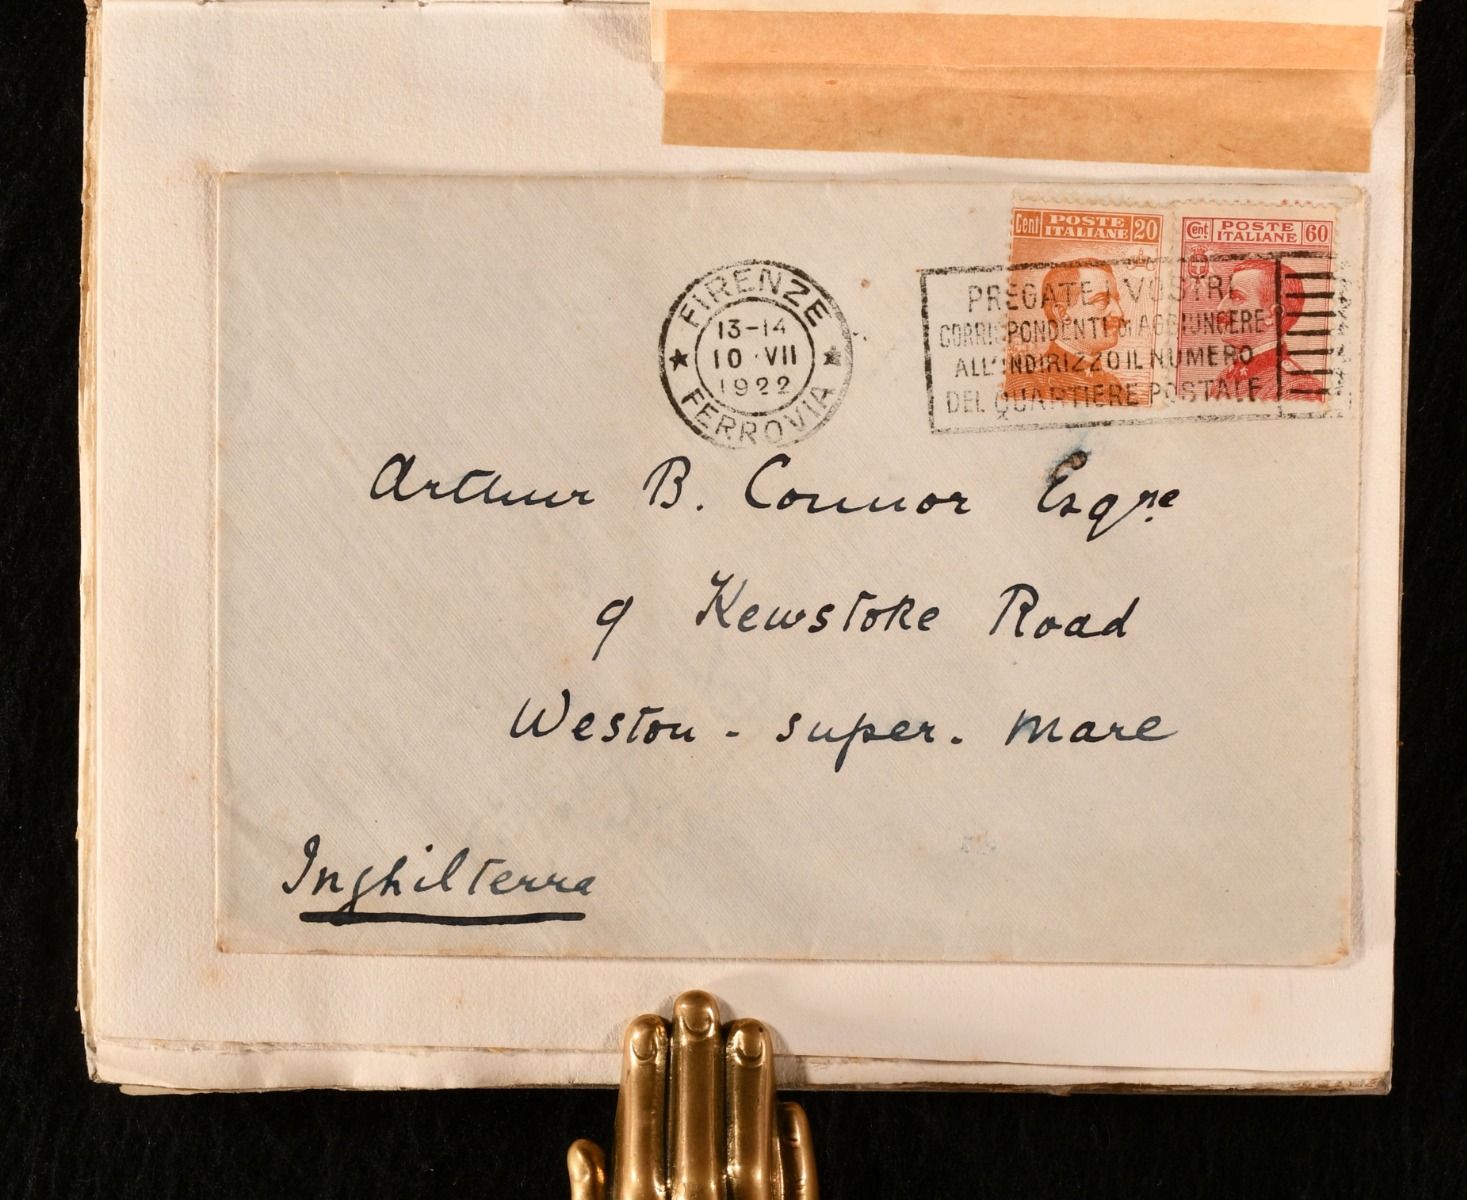 Cent POSTE ITALIANE 20
Cent POSTE ITALIANE 60
FIRENZE
13-14
10 · VII
1922
FERROVIA
PREGATE I VOSTRI
CORRISPONDENTI DI AGGIUNGERE
ALL'INDIRIZZO IL NUMERO
DEL QUARTIERE POSTALE
Arthur B. Connor Esqre
9 Kewstoke Road
Weston - super - mare
Inghilterra